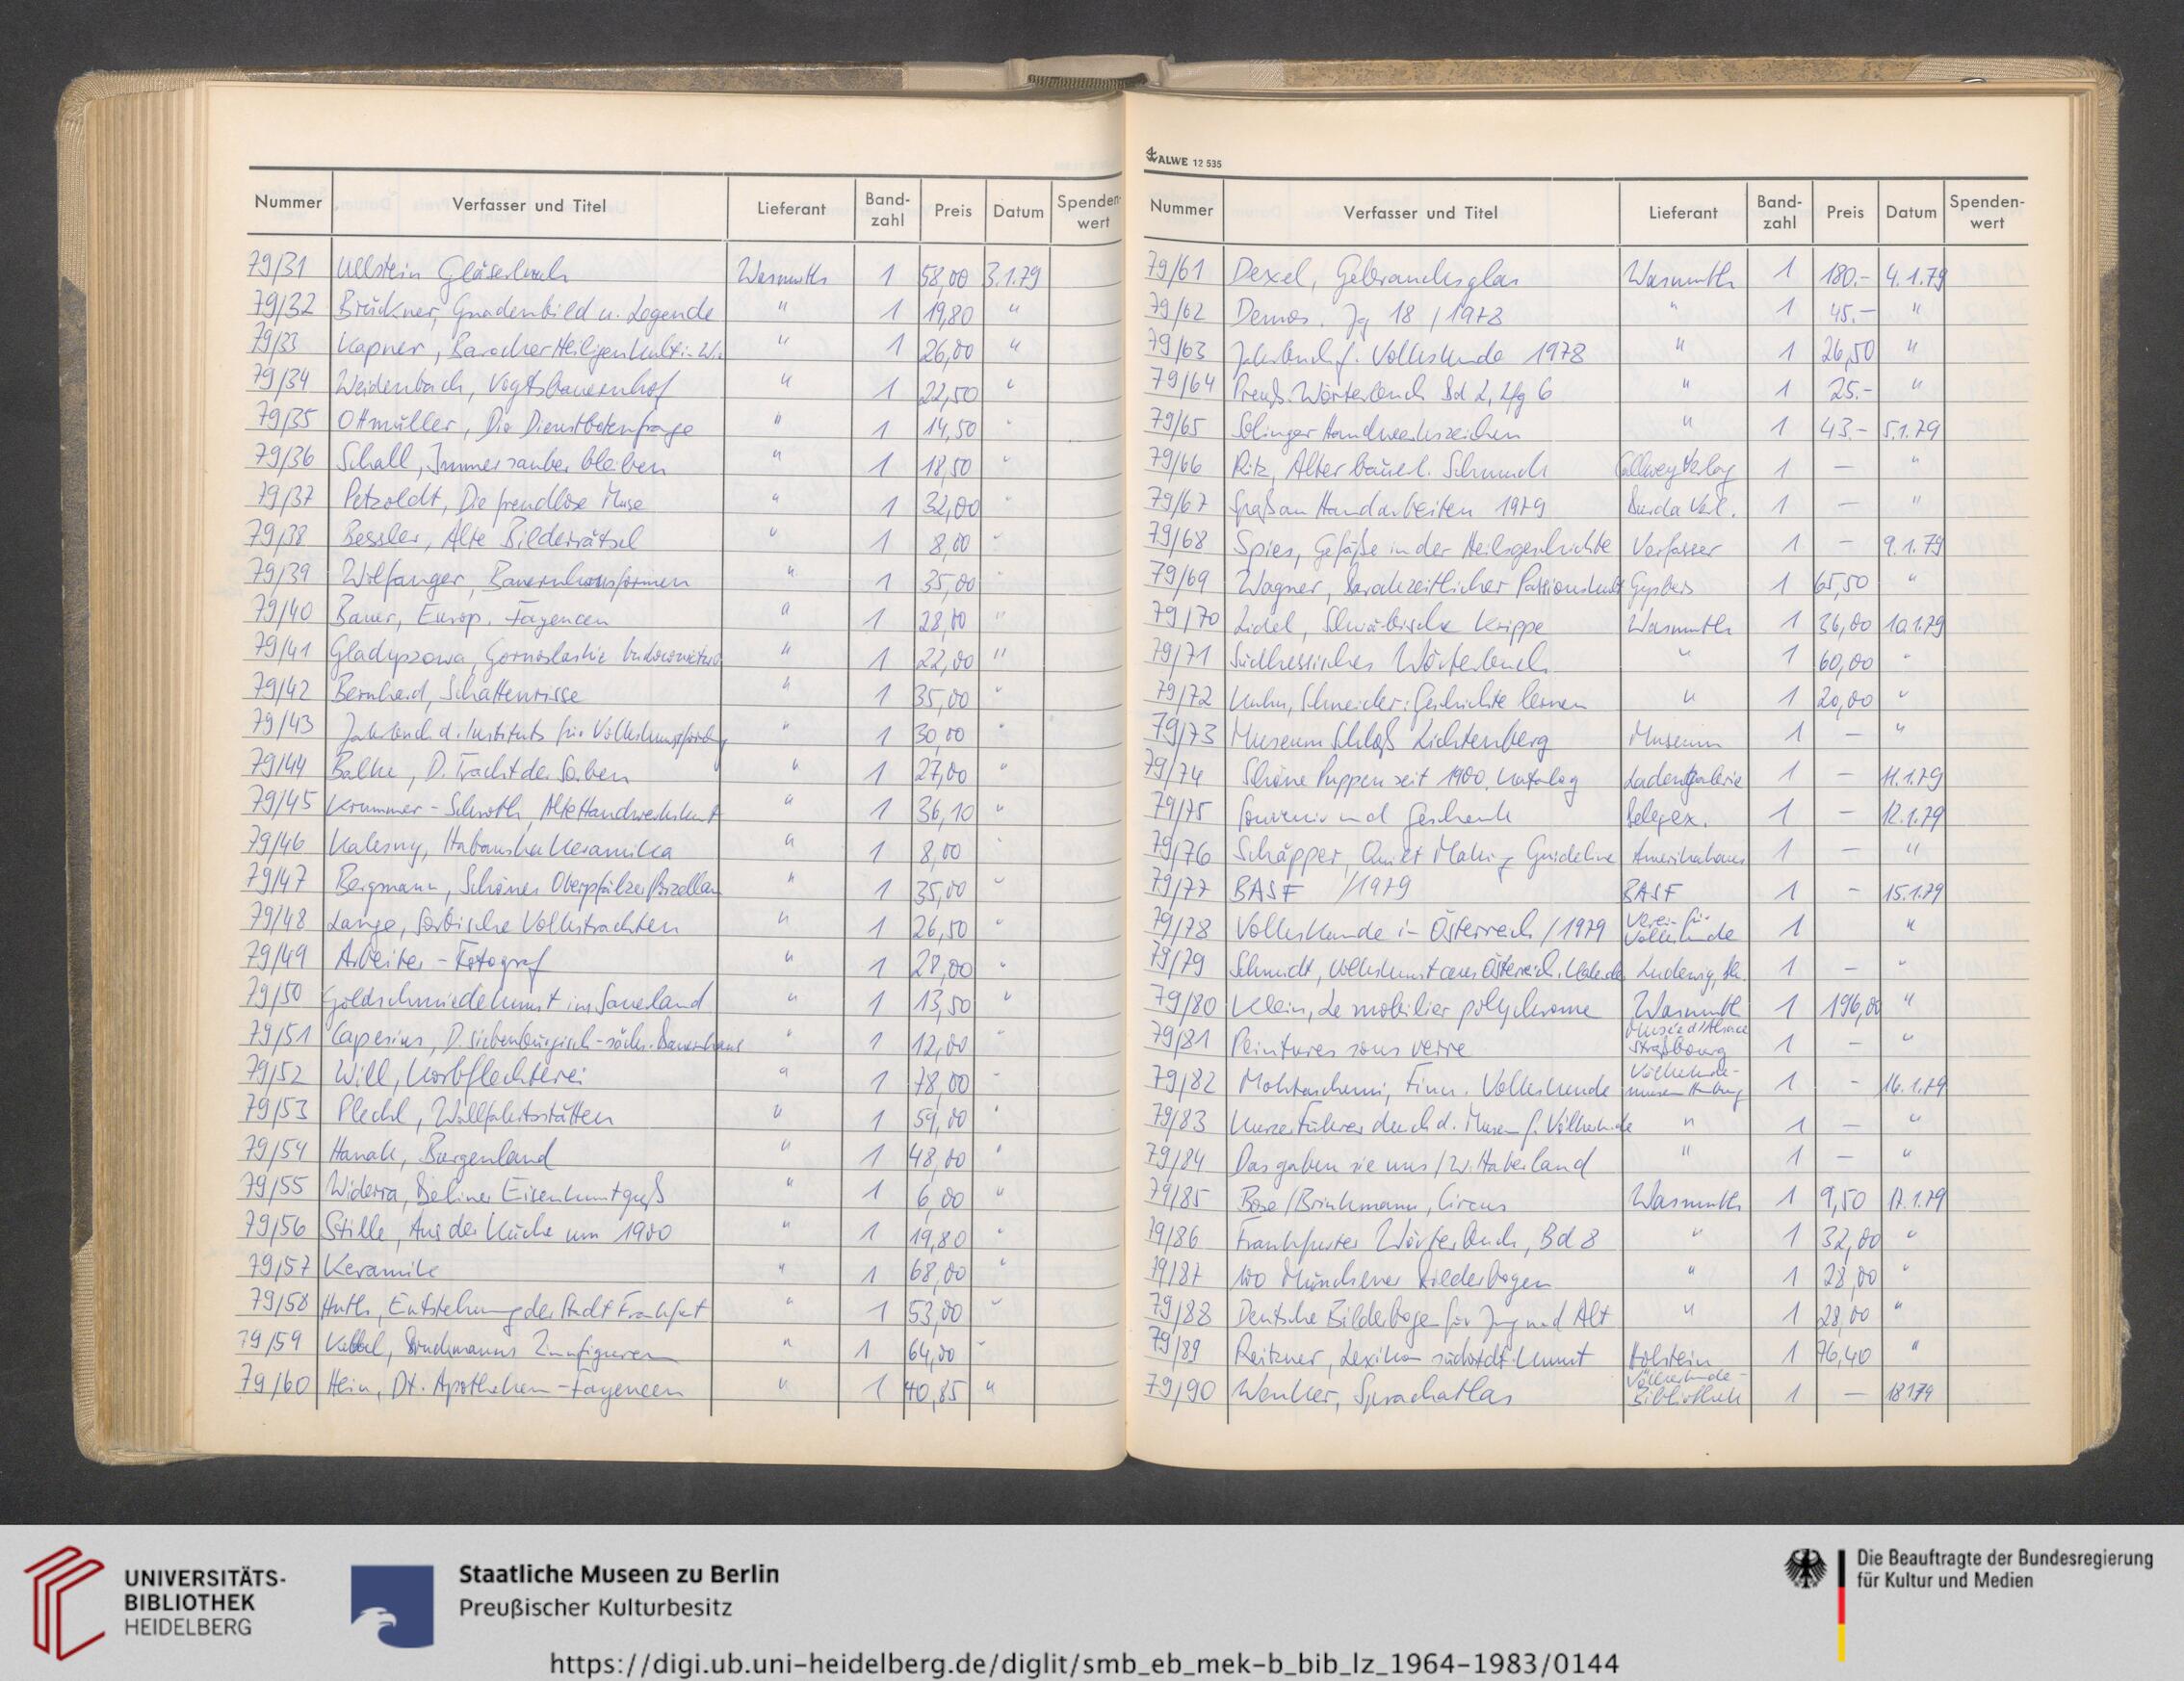 Nummer Verfasser und Titel Lieferant Band-zahl Preis Datum Spenden-wert
79/31 Ullstein Gläserbuch Wasmuth 1 58,00 3.1.79
79/32 Brückner, Gnadenbild u. Legende " 1 19,80 "
79/33 Kapner, Barocker Heiligenkult i. W. " 1 26,00 "
79/34 Weidenbach, Vogtsbauernhof " 1 22,50 "
79/35 Ottmüller, Die Dienstbotenfrage " 1 14,50 "
79/36 Schall, Immer sauber bleiben " 1 18,50 "
79/37 Petzoldt, Die freudlose Muse " 1 32,00 "
79/38 Bessler, Alte Bilderrätsel " 1 8,00 "
79/39 Wolfanger, Bauernhausformen " 1 35,00 "
79/40 Bauer, Europ. Fayencen " 1 28,00 "
79/41 Gladyszowa, Gornoslaskie budownictwo " 1 22,00 "
79/42 Bernhard, Schattenrisse " 1 35,00 "
79/43 Jahrbuch d. Instituts für Volkskunstforschg " 1 30,00 "
79/44 Balke, D. Tracht der Sorben " 1 27,00 "
79/45 Krummer-Schroth, Alte Handwerkskunst " 1 36,10 "
79/46 Kalesny, Habanska Keramika " 1 8,00 "
79/47 Bergmann, Schönes Oberpfälzer Porzellan " 1 35,00 "
79/48 Lange, Sorbische Volkstrachten " 1 26,50 "
79/49 Arbeiter-Fotograf " 1 28,00 "
79/50 Goldschmiedekunst im Sauerland " 1 13,50 "
79/51 Capesius, D. siebenbürgisch-sächs. Bauernhaus " 1 12,00 "
79/52 Will, Korbflechterei " 1 78,00 "
79/53 Plechl, Wallfahrtsstätten " 1 59,00 "
79/54 Hanak, Burgenland " 1 48,00 "
79/55 Widerra, Berliner Eisenkunstguß " 1 6,00 "
79/56 Stille, Aus der Küche um 1900 " 1 19,80 "
79/57 Keramik " 1 68,00 "
79/58 Huth, Entstehung der Stadt Frankfurt " 1 53,00 "
79/59 Kebbel, Bruckmanns Zinnfiguren " 1 64,00 "
79/60 Hein, Dt. Apotheken-Fayencen " 1 40,85 "
ALWE 12 535
Nummer Verfasser und Titel Lieferant Band-zahl Preis Datum Spenden-wert
79/61 Dexel, Gebrauchsglas Wasmuth 1 180.- 4.1.79
79/62 Demos. Jg 18 / 1978 " 1 45.- "
79/63 Jahrbuch f. Volkskunde 1978 " 1 26,50 "
79/64 Preuß. Wörterbuch Bd 2, Lfg 6 " 1 25.- "
79/65 Solinger Handwerkszeichen " 1 43.- 5.1.79
79/66 Ritz, Alter bäuerl. Schmuck Callwey Verlag 1 — "
79/67 Spaß an Handarbeiten 1979 Burda Verl. 1 — "
79/68 Spies, Gefäße in der Heilsgeschichte Verfasser 1 - 9.1.79
79/69 Wagner, Barockzeitlicher Passionskult 1 65,50 "
79/70 Lidel, Schwäbische Krippe Wasmuth 1 36,00 10.1.79
79/71 Südhessisches Wörterbuch " 1 60,00 "
79/72 Kuhn, Schneider: Geschichte lernen " 1 20,00 "
79/73 Museum Schloß Lichtenberg Museum 1 — "
79/74 Schöne Puppen seit 1900. Katalog Ladengalerie 1 — 11.1.79
79/75 Souvenir und Geschenk Belegex. 1 — 12.1.79
79/76 Schäpper, Quilt Making Guideline Amerikahaus 1 — "
79/77 BASF /1979 BASF 1 - 15.1.79
79/78 Volkskunde in Österreich / 1979 Verein für Volkskunde 1 "
79/79 Schmidt, Volkskunst aus Österreich. Kalender Ludewig, Th. 1 — "
79/80 Klein, Le mobilier polychrome Wasmuth 1 196,00 "
79/81 Peintures sous verre Musée d'Alsace Straßbourg 1 — "
79/82 Mohtaschemi, Finn. Volkskunde Völkerkunde-museum Hamburg 1 - 16.1.79
79/83 Kurzer Führer durch d. Museum f. Völkerkunde " 1 — "
79/84 Das gaben sie uns / W. Haberland " 1 — "
79/85 Bose/Brinkmann, Circus Wasmuth 1 9,50 17.1.79
79/86 Frankfurter Wörterbuch, Bd 8 " 1 32,00 "
79/87 100 Münchener Bilderbogen " 1 28,00 "
79/88 Deutsche Bilderbogen für Jung und Alt " 1 28,00 "
79/89 Reitzner, Lexikon Kunst Holstein 1 76,40 "
79/90 Wenker, Sprachatlas Völkerkunde-Bibliothek 1 — 18.1.79
UNIVERSITÄTS-
BIBLIOTHEK
HEIDELBERG
Staatliche Museen zu Berlin
Preußischer Kulturbesitz
Die Beauftragte der Bundesregierung
für Kultur und Medien
https://digi.ub.uni-heidelberg.de/diglit/smb_eb_mek-b_bib_lz_1964-1983/0144